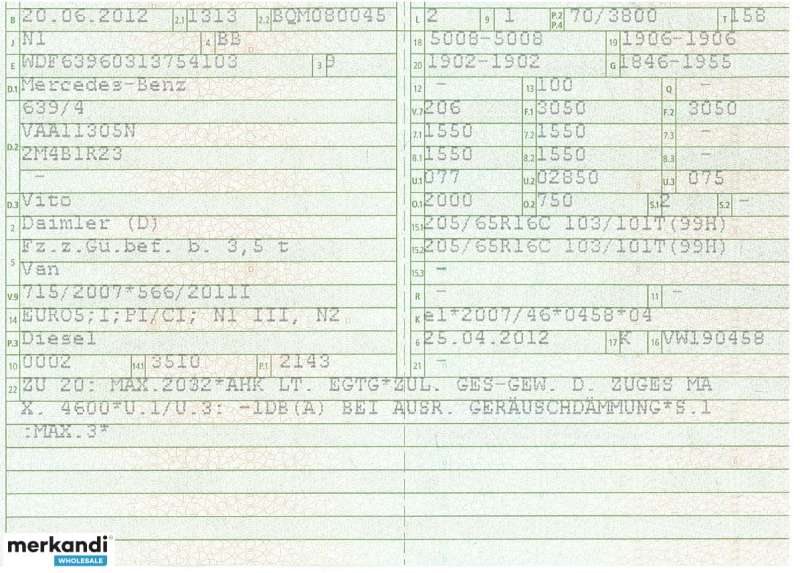 B 20.06.2012 2.1 1313 2.2 BQM080045
J N1 4 BB
E WDF63960313754103 3 9
D.1 Mercedes-Benz
D.2 639/4
VAA11305N
2M4B1R23
-
D.3 Vito
2 Daimler (D)
5 Fz.z.Gü.bef. b. 3,5 t
Van
V.9 715/2007*566/2011I
14 EURO5;I;PI/CI; N1 III, N2
P.3 Diesel
10 0002 14.1 3510 P.1 2143
L 2 9 1 P.2 P.4 70/3800 T 158
18 5008-5008 19 1906-1906
20 1902-1902 G 1846-1955
12 - 13 100 Q -
V.7 206 F.1 3050 F.2 3050
7.1 1550 7.2 1550 7.3 -
8.1 1550 8.2 1550 8.3 -
U.1 077 U.2 02850 U.3 075
O.1 2000 O.2 750 S.1 2 S.2 -
15.1 205/65R16C 103/101T(99H)
15.2 205/65R16C 103/101T(99H)
15.3 -
R - 11 -
K e1*2007/46*0458*04
6 25.04.2012 17 K 16 VW190458
21 -
22 ZU 20: MAX.2032*AHK LT. EGTG*ZUL. GES-GEW. D. ZUGES MA
X. 4600*U.1/U.3: -1DB(A) BEI AUSR. GERÄUSCHDÄMMUNG*S.1
:MAX.3*
merkandi
WHOLESALE